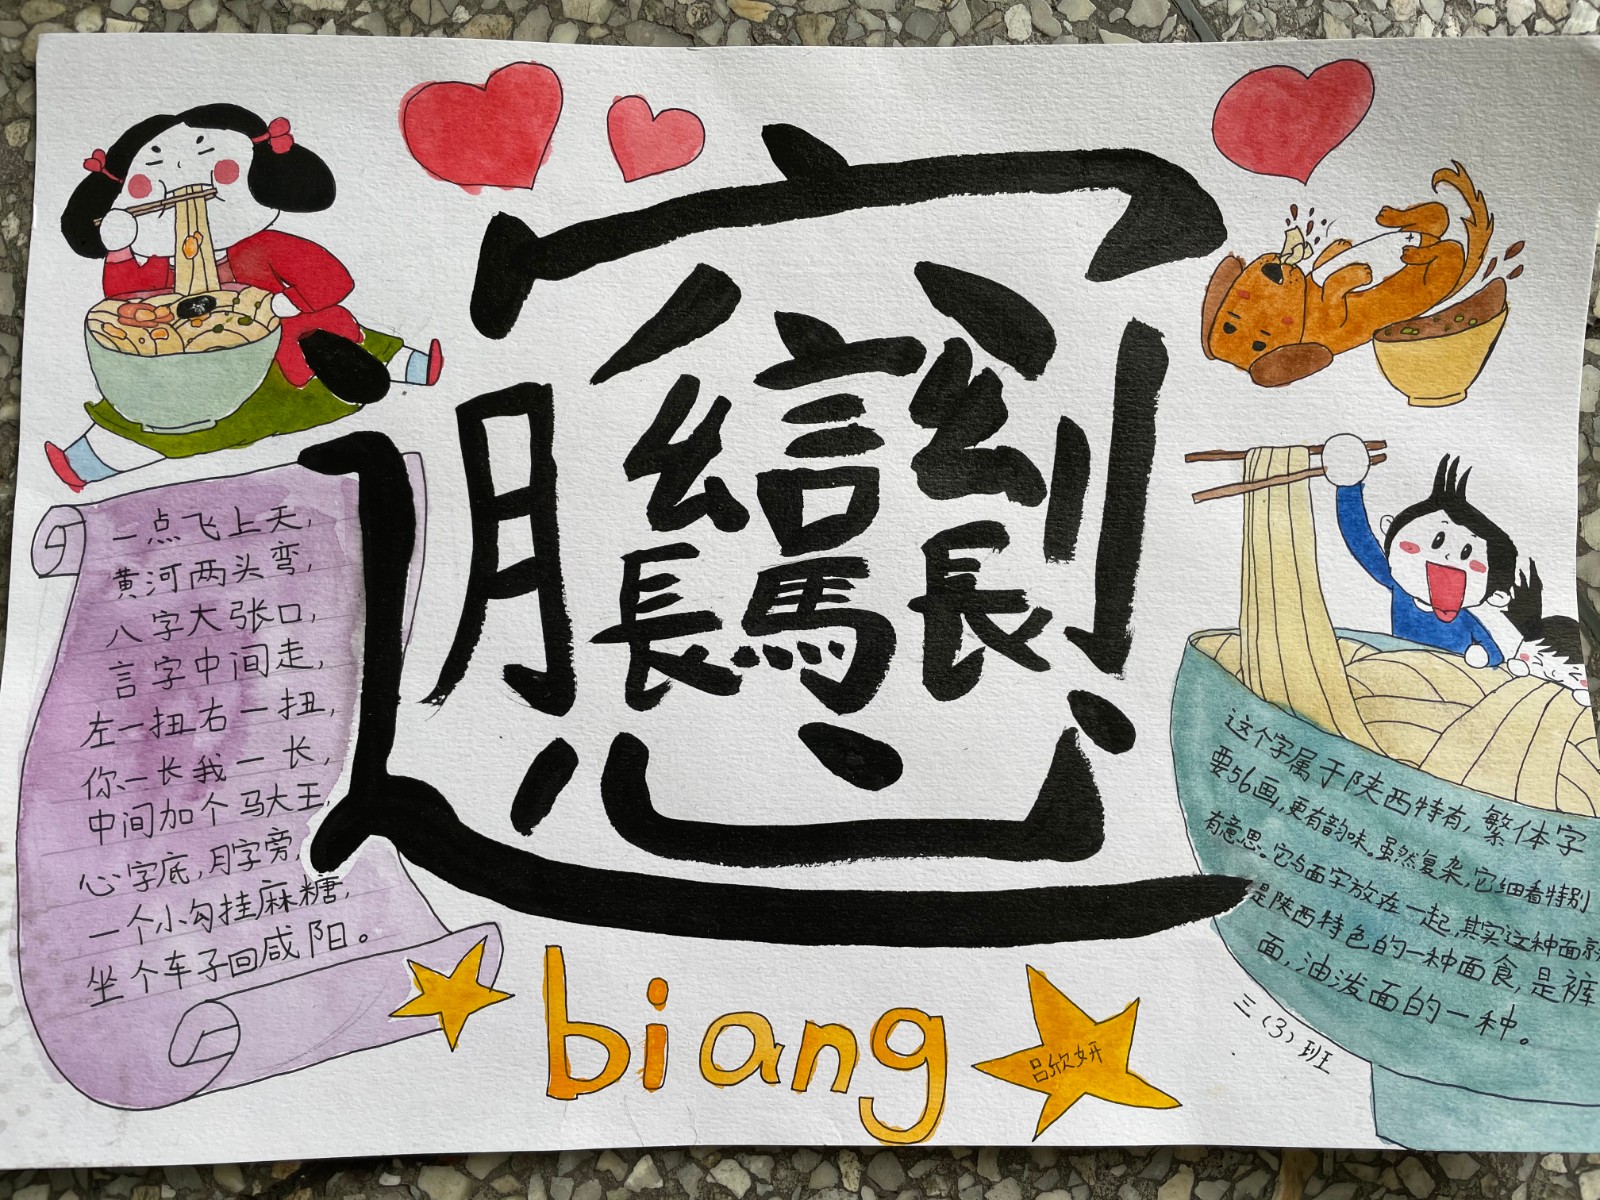 𰻝
一点飞上天，
黄河两头弯，
八字大张口，
言字中间走，
左一扭右一扭，
你一长我一长，
中间加个马大王，
心字底，月字旁，
一个小勾挂麻糖，
坐个车子回咸阳。
biang
吕欣妍
这个字属于陕西特有，繁体字
要56画，更有韵味。虽然复杂，它细看特别
有意思。它与面字放在一起，其实这种面就
是陕西特色的一种面食，是裤
面，油泼面的一种。
三（3）班